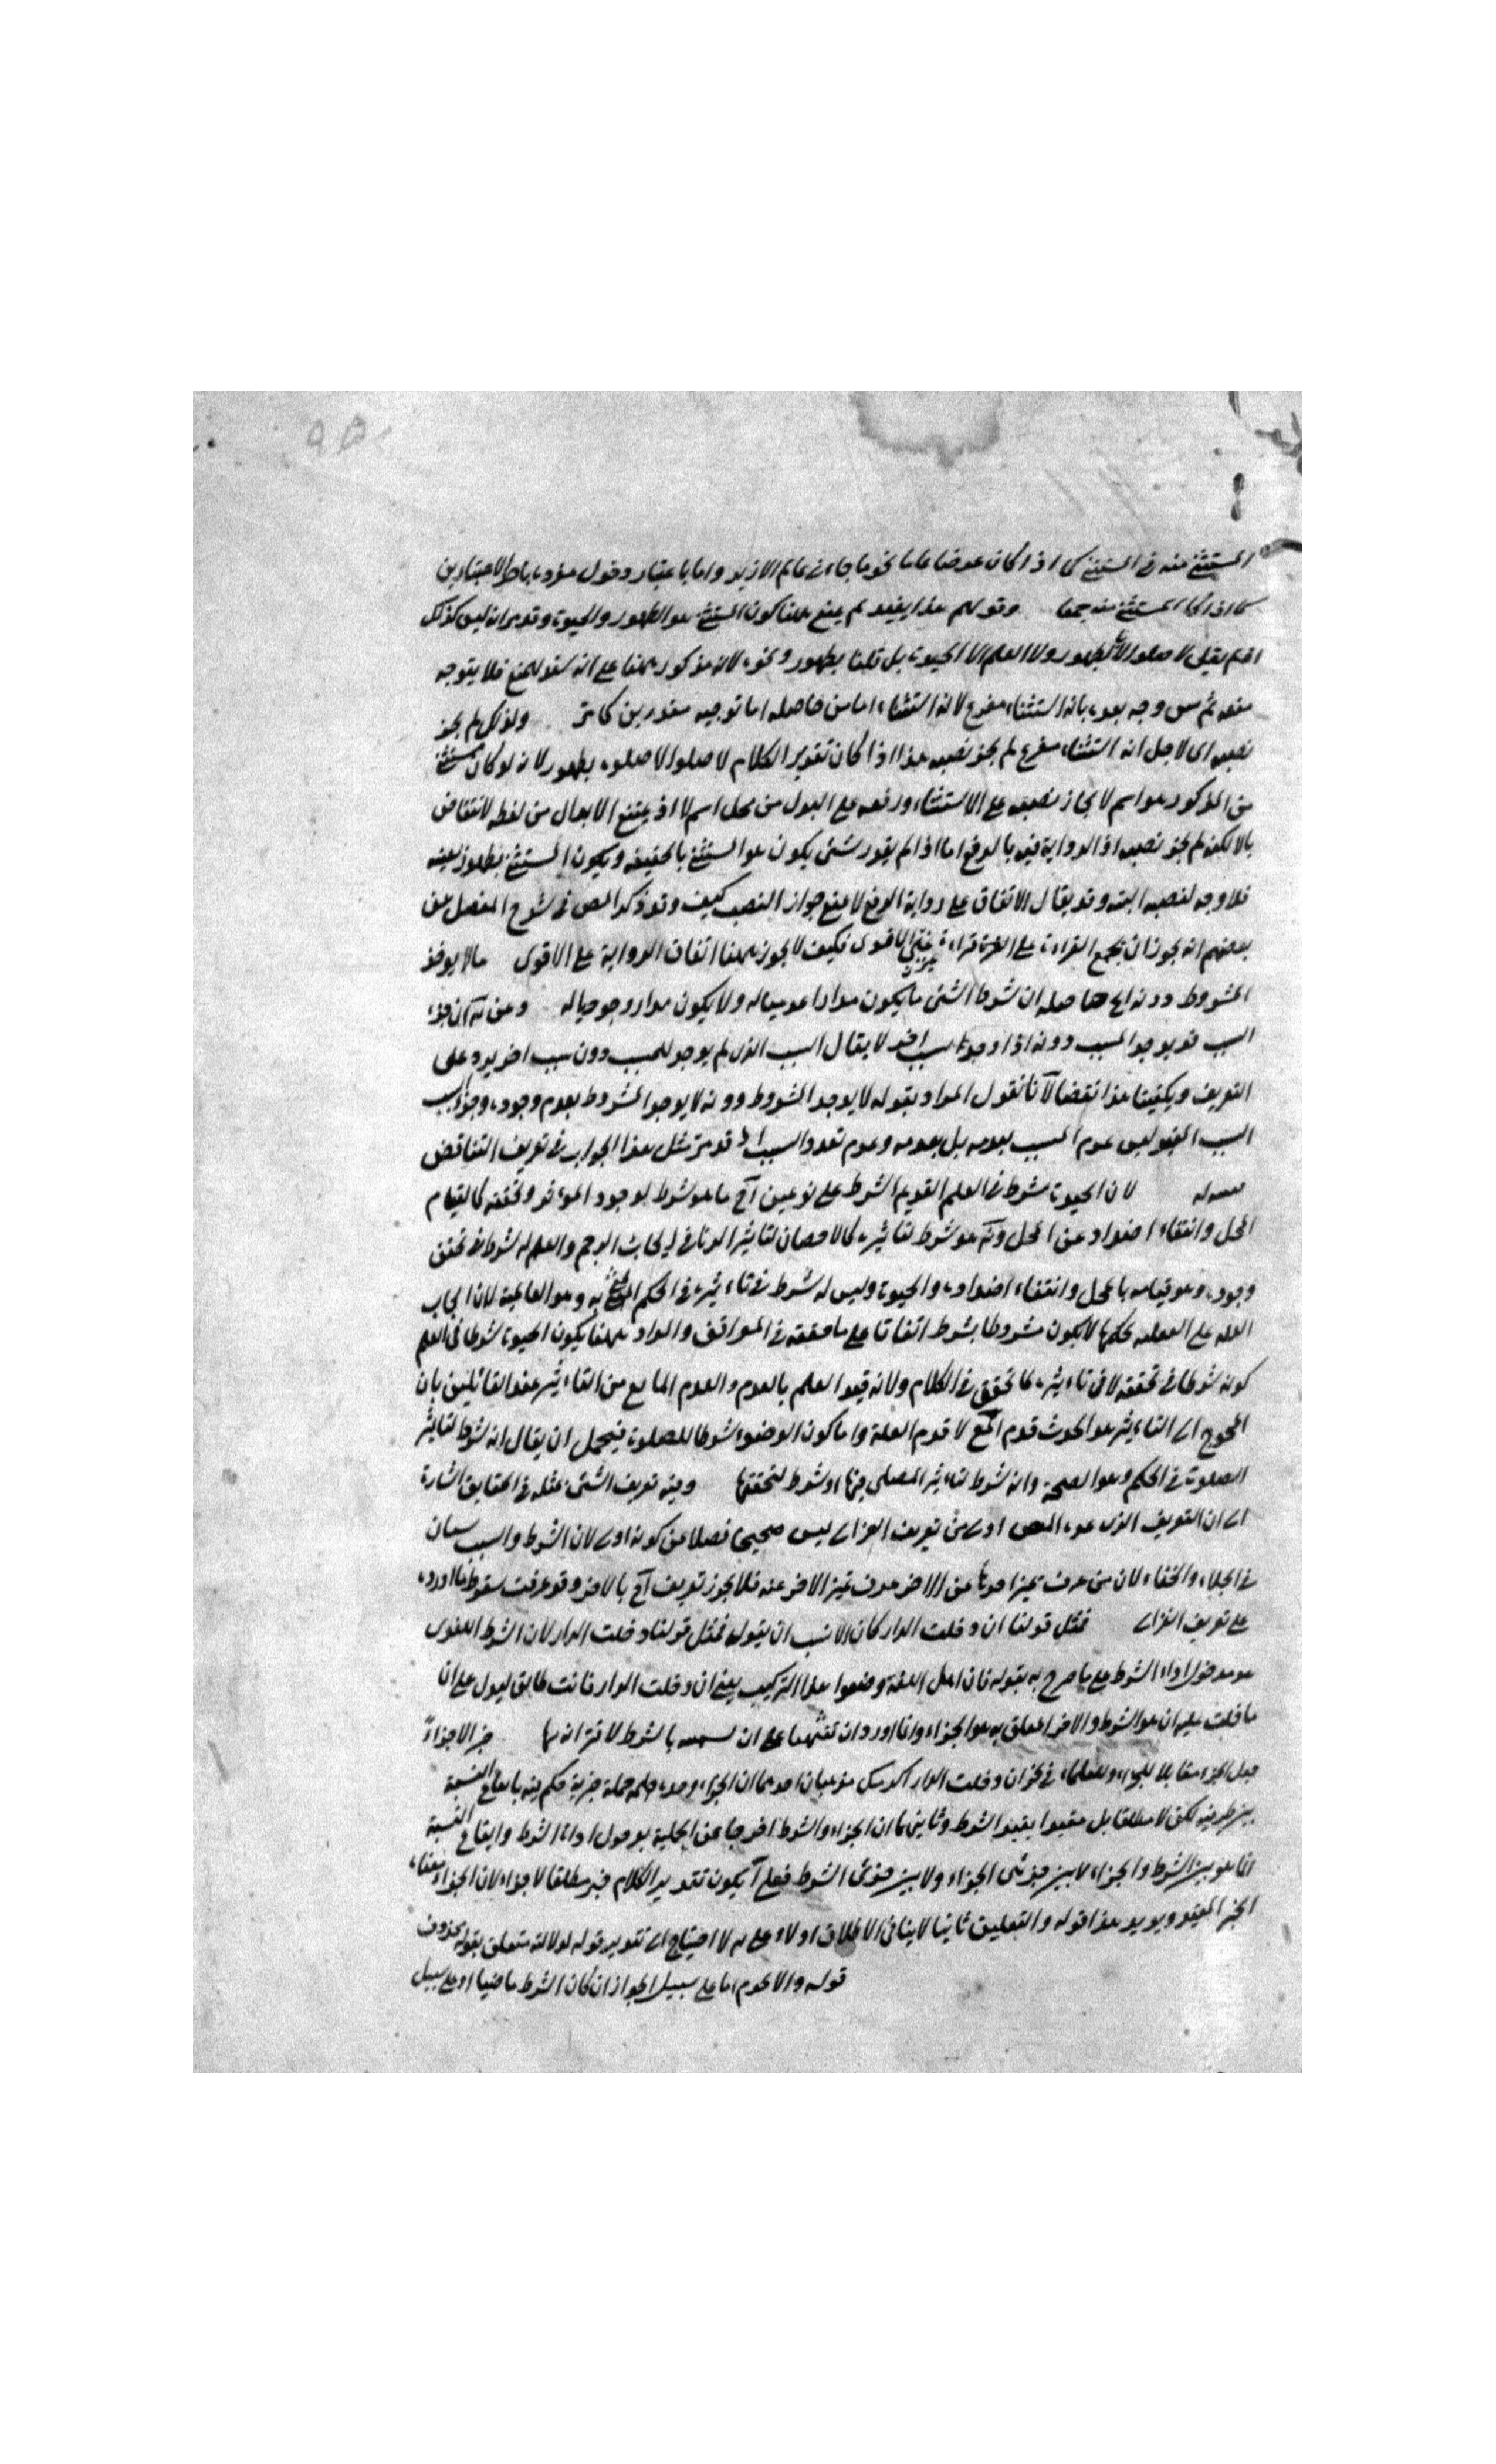 المستثنى منه في المستثنى كما اذا كان عرضا عاما نحو ما جاءني عالم الا زيد واما باعتبار دخول
كما اذا كان المستثنى منه جمعا وقولهم هذا يفيد لم يمنع ههنا كون المستثنى هو الطهور والحيوة وقد مر انه ليس كذلك
اذ لم يقل لا صلوة الا الطهور ولا العلم الا الحيوة بل قلنا بطهور ونحوه لانه مذكور ههنا على انه سند للمنع فلا يتوجه
منعه ثم وجه بعده بانه استثناء مفرغ لانه استثناء من حاصله اما توجيه مقدر بن كما مر ولذلك لم يجز
نصبه اى لاجل انه استثناء مفرغ لم يجز نصبه هذا اذا كان تقدير الكلام لا صلوة الا صلوة بطهور لانه لو كان مستثنى
من المذكور هو اسم لا لجاز نصبه على الاستثناء ورفعه على البدل من محل اسم لا اذ يمتنع الابدال من لفظه لانتقاض
بالا لكنه لم يجز نصبه اذ الرواية فيه بالرفع اما اذا لم يقدر شئ يكون هو المستثنى بالحقيقة ويكون المستثنى بطهور بعينه
فلا وجه لنصبه البتة وقد يقال الاتفاق على رواية الرفع لا يمنع جواز النصب كيف وقد ذكر المص في شرح المفصل عن
بعضهم انه يجوز ان يجمع القراء على قراءة غير الاقوى فكيف لا يجوز ههنا اتفاق الرواية على الاقوى ما لا يوجد
المشروط دونه الخ حاصله ان شرط الشئ ما يكون مدارا عدميا له ولا يكون مدارا وجوديا له وعن ان جزء
السبب قد يوجد المسبب دونه اذا وجد سبب اخر لا يقال السبب الذى لم يوجد للمسبب دون سبب اخر يرد على
التعريف ويكفينا هذا نقضا لانا نقول المراد بقوله لا يوجد المشروط دونه لا يوجد المشروط بعدم وجوده وجزء السبب
السبب المعين ليس عدم المسبب بعدمه بل بعدمه وعدم تعدد السبب قد مر مثل هذا الجواب في تعريف التناقض
لان الحيوة شرط في العلم القديم الشرط على نوعين ما هو شرط لوجود المؤثر وتحققه كالقيام
المحل وانتفاء اضداد عن المحل هو شرط لتاثيره كالاحصان لتاثير الزنا في ايجاب الرجم والعلم له شرط في تحقق
وجوده وهو قيامه بالمحل وانتفاء اضداده والحيوة وليس له شرط في تاءثيره في الحكم به وهو العالمية لان ايجاب
العلة على العلية حكمها لا يكون مشروطا بشرط اتفاقا على ما حققه في المواقف والمراد ههنا بكون الحيوة شرطا في العلم
كونه شرطا في تحققه لا في تاءثيره كما تحقق في الكلام ولانه قيد العلم بالقدم والقدم المانع من التاءثير عند القائلين بان
المحوج الى التاءثير هو الحدوث قدم لا قدم العلة واما كون الوضوء شرطا للصلوة فيحتمل ان يقال انه شرط لتاثير
الصلوة في الحكم وهو الصحة وانه شرط لتاءثير المصلى فيها او شرط لتحققها وفيه تعريف الشئ بمثله في الحقايق اشارة
الى ان التعريف الذى عده المص اولى من تعريف الغزالى ليس صحيحا فضلا من كونه اولى لان الشرط والسبب سيان
في الجلاء والخفاء لان من عرف تميز احدهما عن الاخر عرف تميز الاخر عنه فلا يجوز تعريف بالاخر وقد عرفت سقوط ما اورده
على تعريف الغزالى فمثل قولنا ان دخلت الدار كان الانسب ان يقول فمثل قولنا دخلت الدار لان الشرط اللغوى
هو مدخول اداة الشرط على ما صرح به بقوله فان اهل اللغة وضعوا هذا التركيب يعني ان دخلت الدار فانت طالق ليدل على ان
ما دخلت عليه ان هو الشرط والاخر المعلق به هو الجزاء وانما اورد ان تنبيها على ان بالشرط لاقترانه بها خبر الاجزاء
جعل الخبر مقابلا للجزاء وللعلماء في نحو ان دخلت الدار مذهبان احدهما ان الجزاء وحده جملة خبرية حكم فيه بايقاع النسبة
بين طرفيه لكن لا مطلقا بل مقيدا بقيد الشرط وثانيهما ان الجزاء والشرط اخرجا عن الجملية بدخول اداة الشرط وايقاع النسبة
انما هو بين الشرط والجزاء لا بين جزئى الجزاء ولا بين جزئى الشرط فعلى يكون تقدير الكلام خبر مطلقا لا جزاء لان الجزاء معناه
الخبر المقيد ويؤيد هذا قوله والتعليق ثانيا لا ينافي الاطلاق اولا وعلى لا احتياج الى تقدير قوله لدلالته متعلق بقوله محذوف
قوله والا لحزم اما على سبيل الجواز ان كان الشرط ماضيا او على سبيل